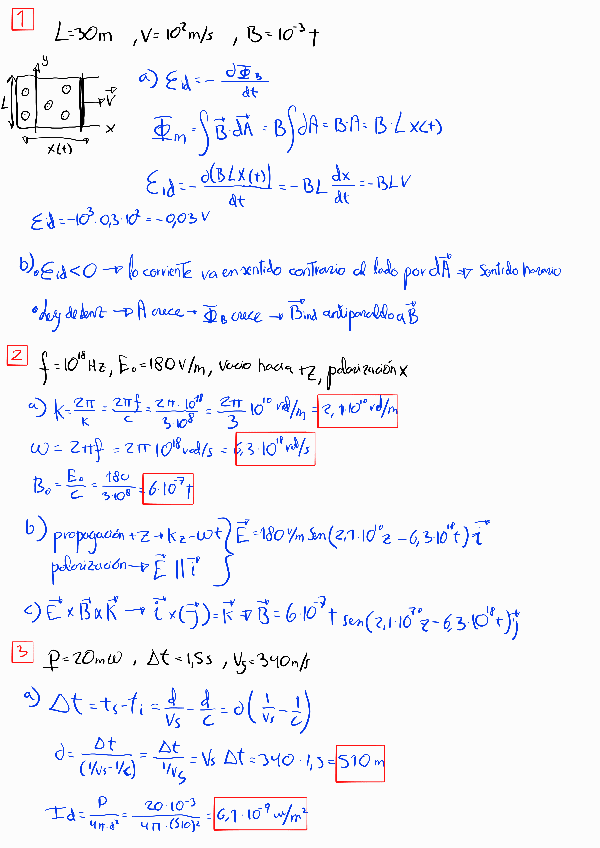 1
L=30m , V=10² m/s , B=10⁻³ t
y
L
V⃗
x
x(t)
a) Ɛid = - dΦ_B/dt
Φ⃗m = ∫B⃗·dA⃗ = B∫dA = B·A = B·L x(t)
Ɛid = - d(BLX(t))/dt = -BL dx/dt = -BLV
Ɛid = -10³·0,3·10² = -0,03 V
b) • Ɛid<0 → la corriente va en sentido contrario al dado por dA⃗ ⇒ sentido horario
• Ley de Lenz → A crece → Φ_B crece → B⃗ind antiparalelo a B⃗
2
f=10¹⁸ Hz, E₀=180 V/m, vacio hacia +z, polarización x
a) K = 2π/K = 2πf/C = 2π·10¹⁸/3·10⁸ = 2π/3 10¹⁰ rad/m = 2,1·10¹⁰ rad/m
ω = 2πf = 2π 10¹⁸ rad/s = 6,3·10¹⁸ rad/s
B₀ = E₀/C = 180/3·10⁸ = 6·10⁻⁷ t
b) propagación +z → kz-ωt } E⃗ = 180 V/m sen(2,1·10¹⁰z - 6,3·10¹⁸t) i⃗
polarización → E⃗ || i⃗
c) E⃗ x B⃗ α K⃗ → i⃗ x (j⃗) = K⃗ ⇒ B⃗ = 6·10⁻⁷ t sen(2,1·10²⁰z - 6,3·10¹⁸t) j⃗
3
P=20mω , Δt=1,5s , Vs=340 m/s
a) Δt = ts-ti = d/Vs - d/C = d(1/Vs - 1/C)
d = Δt/(1/Vs-1/c) = Δt/1/Vs = Vs Δt = 340·1,5 = 510 m
Id = P/4π·d² = 20·10⁻³/4π·(510)² = 6,1·10⁻⁹ w/m²